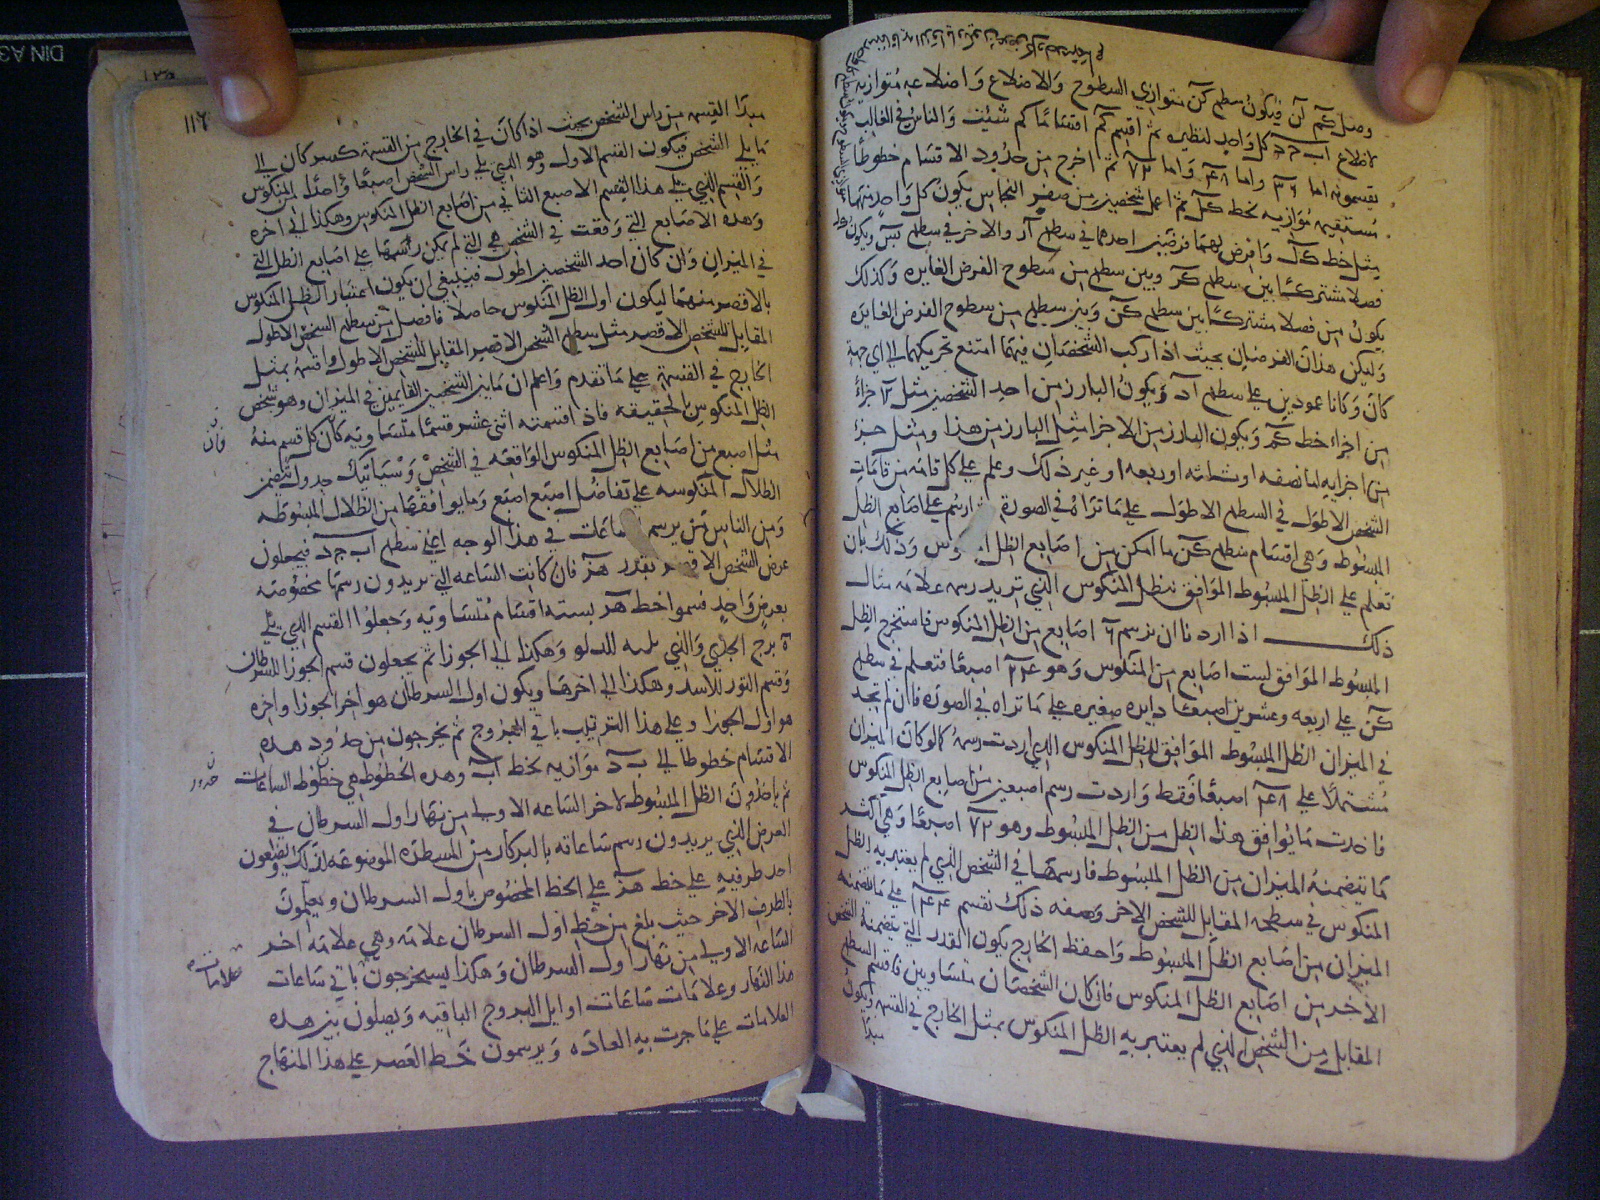 وصل كم آن فيكون سطح كن متوازي السطوح والاضلاع واضلاعه متوازية
لاضلاع اب جد كل واحد لنظيره ثم اقسم كم اقساما كم شئت والناس في الغالب
يقسمونه اما ٣٦ واما ٤٨ واما ٧٢ ثم اخرج من حدود الاقسام خطوطا
مستقيمه موازيه لخط كل ثم اعمل شخصين من صفر النحاس يكون كل واحد منهما
مثل خط كل وافرض لهما فرضين احدهما في سطح آر والاخر في سطح بس ويكون
فصلا مشتركا بين سطح كر وبين سطح من سطوح الفرض الغايره وكذلك
يكون من فصلا مشتركا بين سطح كن وبين سطح من سطوح الفرض الغايره
وليكن هذان الفرضان بحيث اذا ركب الشخصان فيهما امتنع تحريكهما الى اي جهة
كان وكانا عمودين على سطح اد ويكون البارز من احد الشخصين مثل ١٢ جزءا
من اجزاء خط كم ويكون البارز من الاخر اما مثل البارز من هذا ومثل جزء
من اجزايه اما نصفه او ثلثه او ربعه او غير ذلك وعلم على كل قامه من قامات
الشخص الاطول في السطح الاطول على ما تراه في الصورة ثم ارسم على اصابع الظل
المبسوط وهي اقسام سطح كن ما امكن من اصابع الظل المنكوس وذلك بان
تعلم على الظل المبسوط الموافق للظل المنكوس الذي تريد رسمه علامه مثال
ذلك اذا اردنا ان نرسم ٦ اصابع من الظل المنكوس فاستخرج الظل
المبسوط الموافق لست اصابع من المنكوس وهو ٢٤ اصبعا فتعلم في سطح
كن على اربعه وعشرين اصبعا دايره صغيره على ما تراه في الصوره فان لم تجد
في الميزان الظل المبسوط الموافق للظل المنكوس الذي اردت رسمه كما لو كان الميزان
مشتملا على ٤٨ اصبعا فقط واردت رسم اصبعين من اصابع الظل المنكوس
فاخذت ما يوافق هذا الظل من الظل المبسوط وهو ٧٢ اصبعا وهي اكثر
مما يتضمنه الميزان من الظل المبسوط فارسمها في الشخص الذي لم يعتبر به الظل
المنكوس في سطحه المقابل للشخص الاخر وصفه ذلك تقسم ١٤٤ على ما يتضمنه
الميزان من اصابع الظل المبسوط واحفظ الخارج يكون القدر الذي يتضمنه الشخص
الاخر من اصابع الظل المنكوس فان كان الشخصان متساويين فاقسم السطح
المقابل من الشخص الذي لم يعتبر به الظل المنكوس بمثل الخارج في القسمه ويكون
مبدا
١١٦
مبدا القسمه من راس الشخص بحيث اذا كان في الخارج من القسمة كسر كان الى
ما يلي الشخص فيكون القسم الاول وهو الذي يلي راس الشخص اصبعا واحدا من المنكوس
والقسم الذي يلي هذا القسم الاصبع الثاني من اصابع الظل المنكوس وهكذا الى اخره
وهذه الاصابع التي وقعت في الشخص هي التي لم يمكن رسمها على اصابع الظل التي
في الميزان وان كان احد الشخصين اطول فينبغي ان يكون اعتبار الظل المنكوس
بالاقصر منهما ليكون اول الظل المنكوس حاصلا فافصل من سطح الشخص الاطول
المقابل للشخص الاقصر مثل سطح الشخص الاقصر المقابل للشخص الاطول واقسمه بمثل
الخارج في القسمة على ما تقدم واعلم ان ما بين الشخصين القايمين في الميزان وهو شخص
الظل المنكوس بالحقيقه فاذا قسمته اثني عشر قسما متساويه كان كل قسم منه
فان
مثل اصبع من اصابع الظل المنكوس الواقعه في الشخص وسياتيك جدول يتضمن
الظلال المنكوسه على تفاضل اصبع اصبع وما يوافقها من الظلال المبسوطه
ومن الناس من يرسم ساعات في هذا الوجه اعني سطح اب جد فيجعلون
عرض الشخص الاقصر بقدر هز فان كانت الساعه التي يريدون رسمها مخصوصه
بعرض واحد قسموا خط هز بسته اقسام متساويه وجعلوا القسم الذي يلي
ه برج الجدي والذي يليه للدلو وهكذا الى الجوزا ثم يجعلون قسم الجوزا للسرطان
وقسم الثور للاسد وهكذا الى اخرها ويكون اول السرطان هو اخر الجوزا واخره
هو اول الجوزا وعلى هذا الترتيب باقي البروج ثم يخرجون من حدود هذه
الاقسام خطوطا الى ب د موازيه لخط اب وهذه الخطوط هي خطوط الساعات
حدود
ثم ياخذون الظل المبسوط لاخر الساعه الاولى من نهار اول السرطان في
العرض الذي يريدون رسم ساعاته بالبركار من المسطره الموضوعه لذلك ويضعون
احد طرفيه على خط هز على الخط المخصوص باول السرطان ويعلمون
بالطرف الاخر حيث بلغ من خط اول السرطان علامه وهي علامه اخر
الساعه الاولى من نهار اول السرطان وهكذا يستخرجون باقي ساعات
هذا النهار وعلامات ساعات اوايل البروج الباقيه ويصلون بين هذه
العلامات على ما جرت به العاده ويرسمون خط العصر على هذا المنهاج